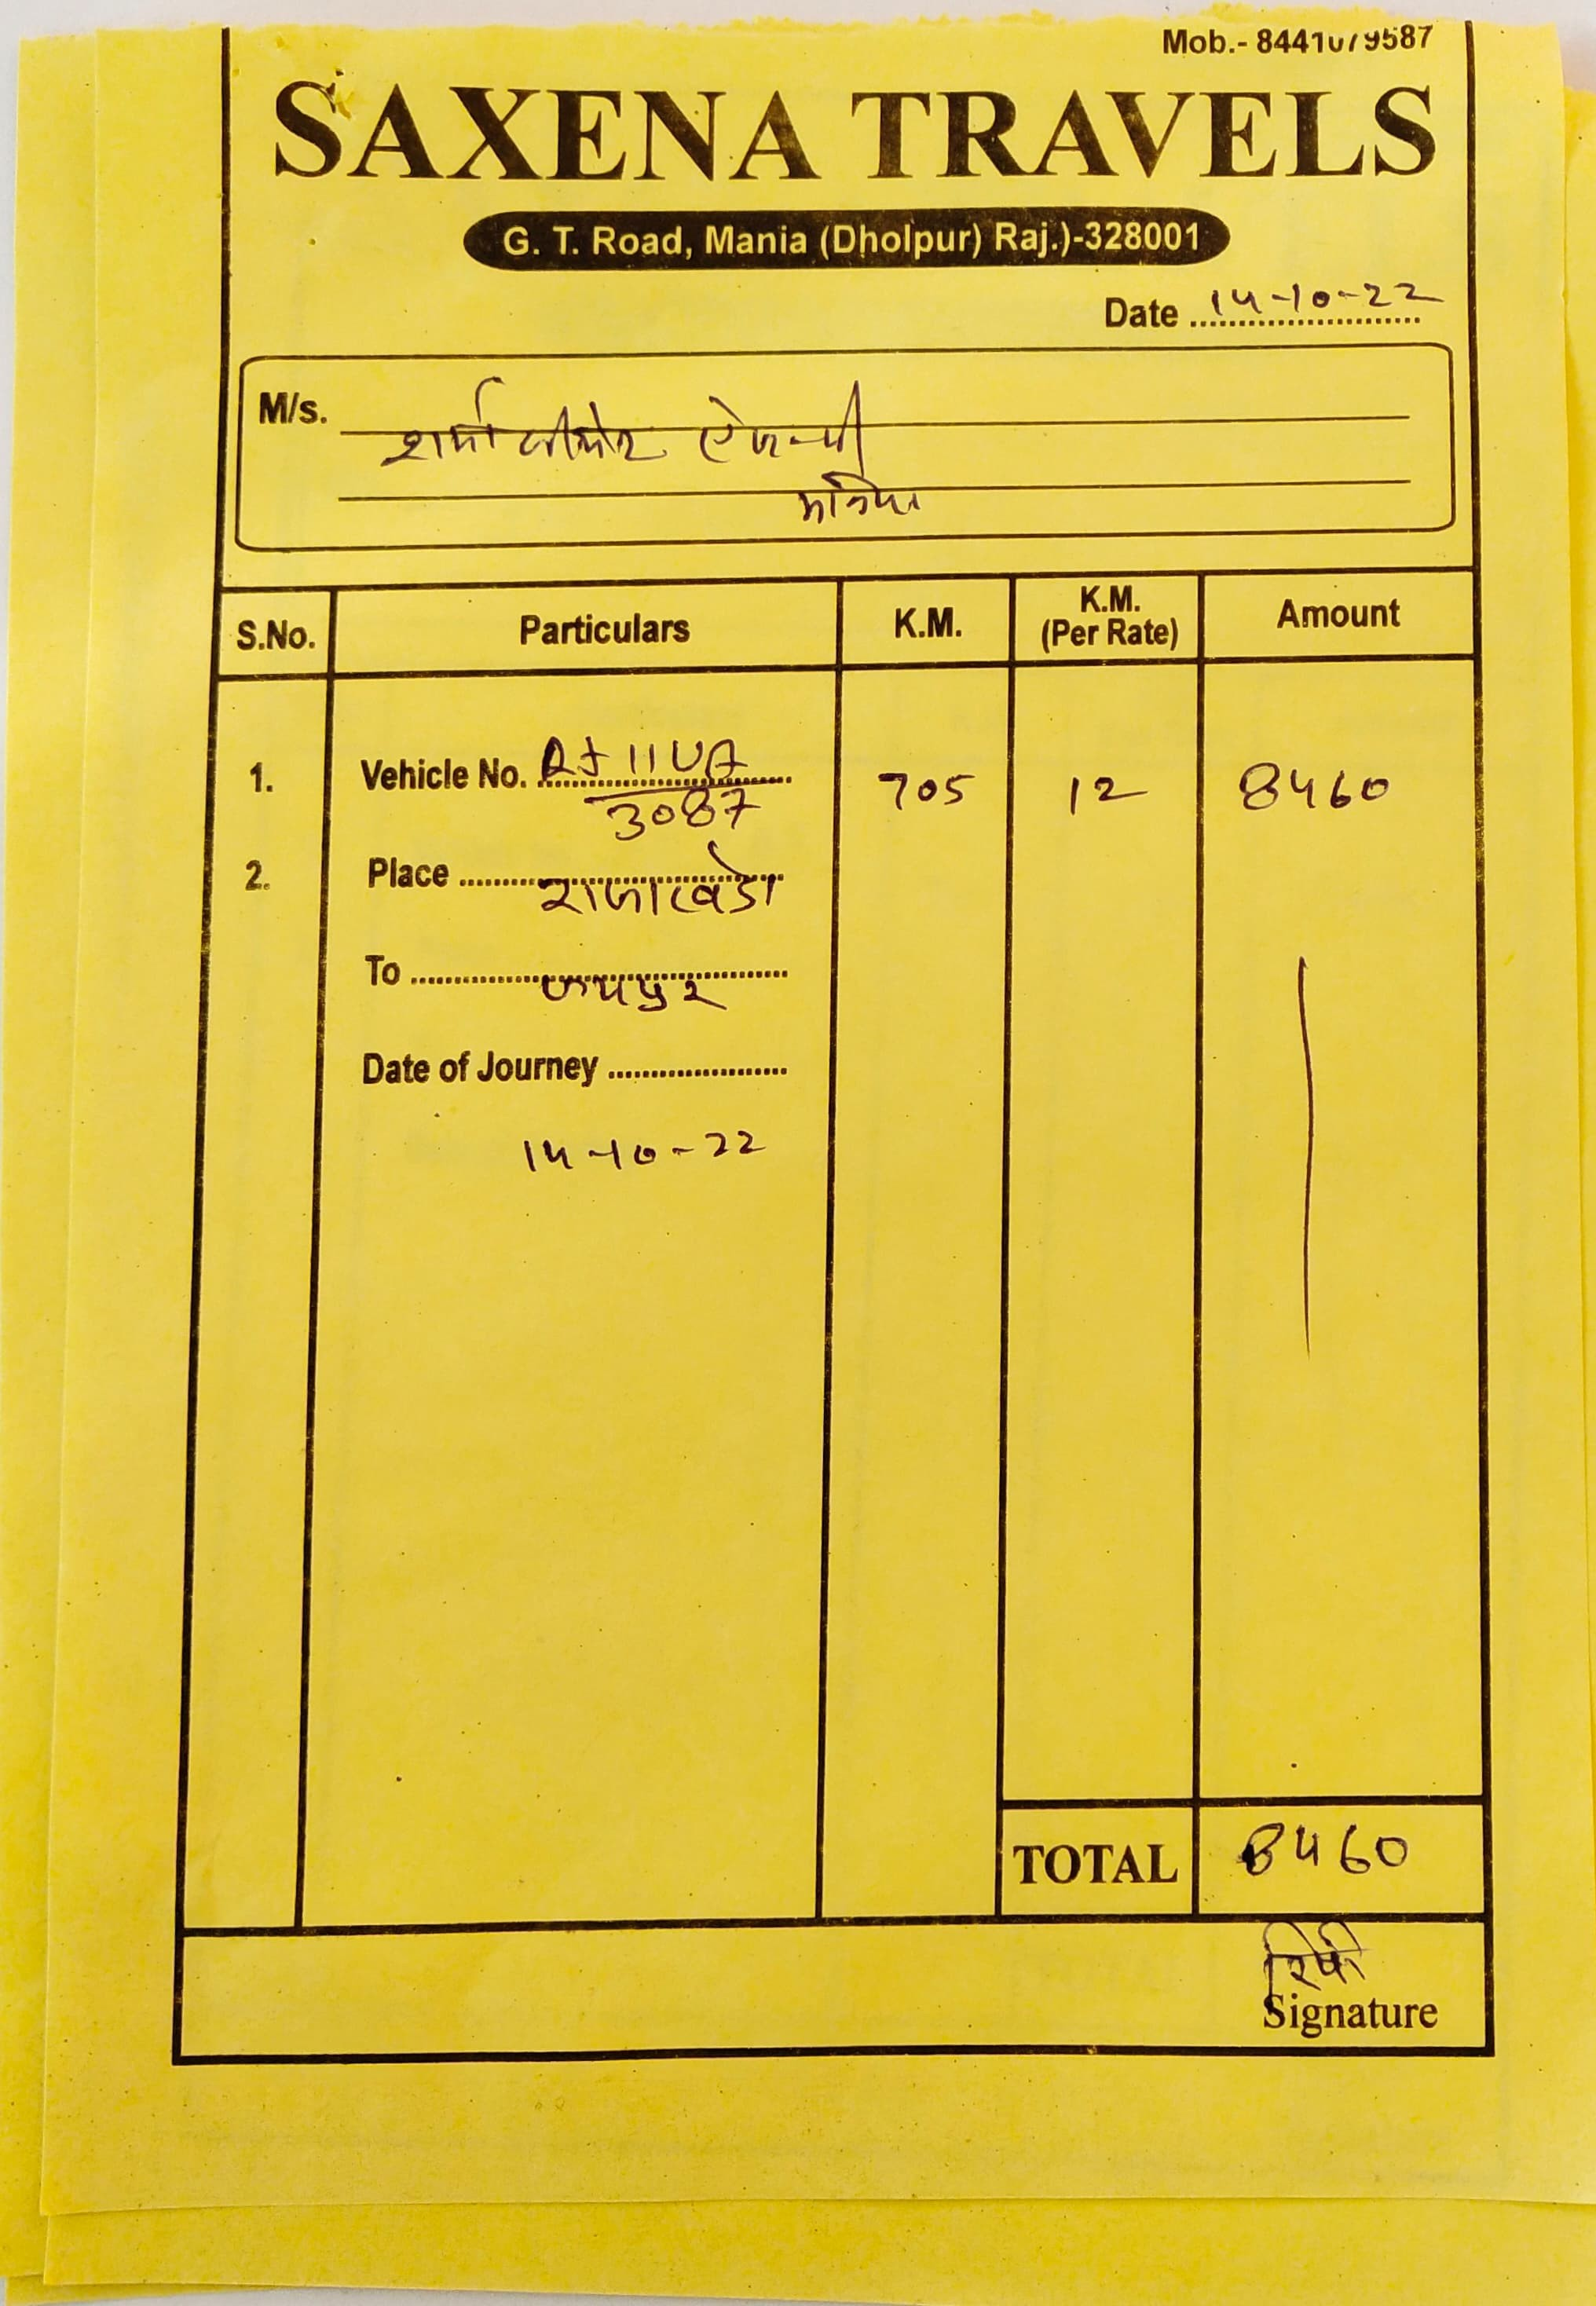 Mob.- 8441079587
SAXENA TRAVELS
G. T. Road, Mania (Dholpur) Raj.)-328001
Date 14-10-22
M/s.
शर्मा ऐजन्सी
मनियां
S.No. Particulars K.M. K.M. (Per Rate) Amount
1. Vehicle No. RJ 11 UA 705 12 8460
3087
2. Place राजाखेडा
To जयपुर
Date of Journey
14-10-22
TOTAL 8460
Signature